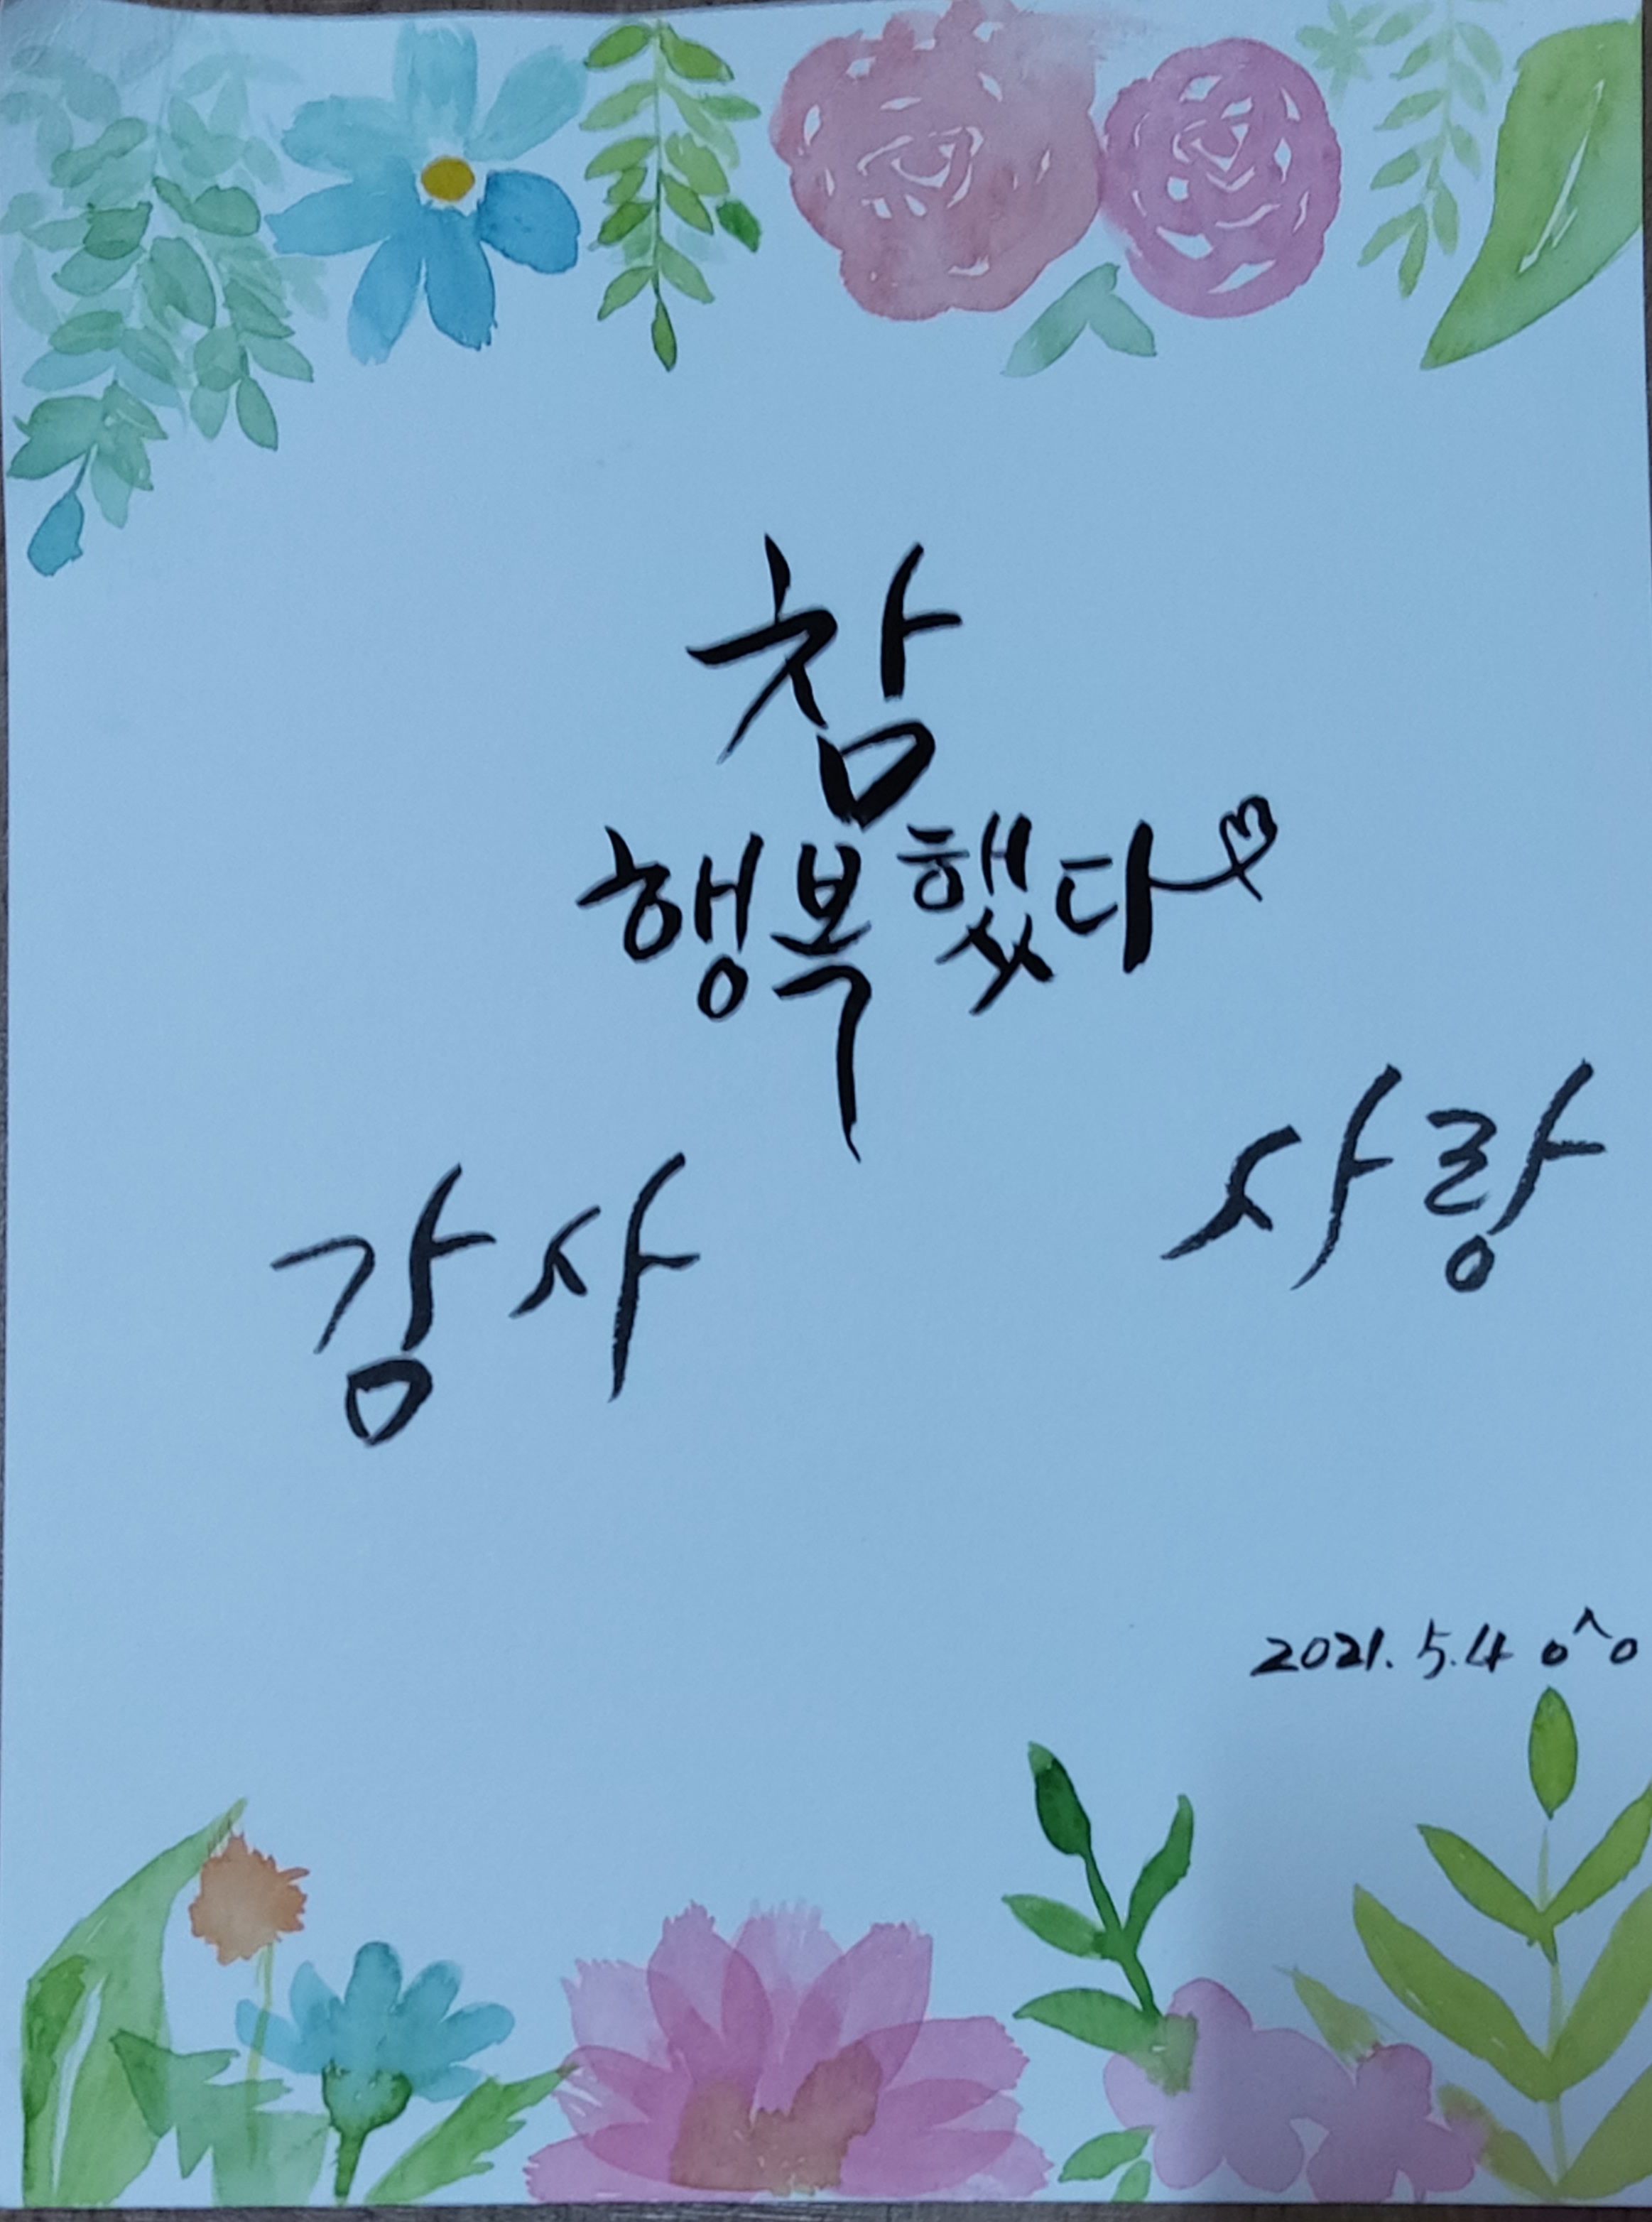 참
행복했다
감사 사랑
2021. 5. 4 o^o